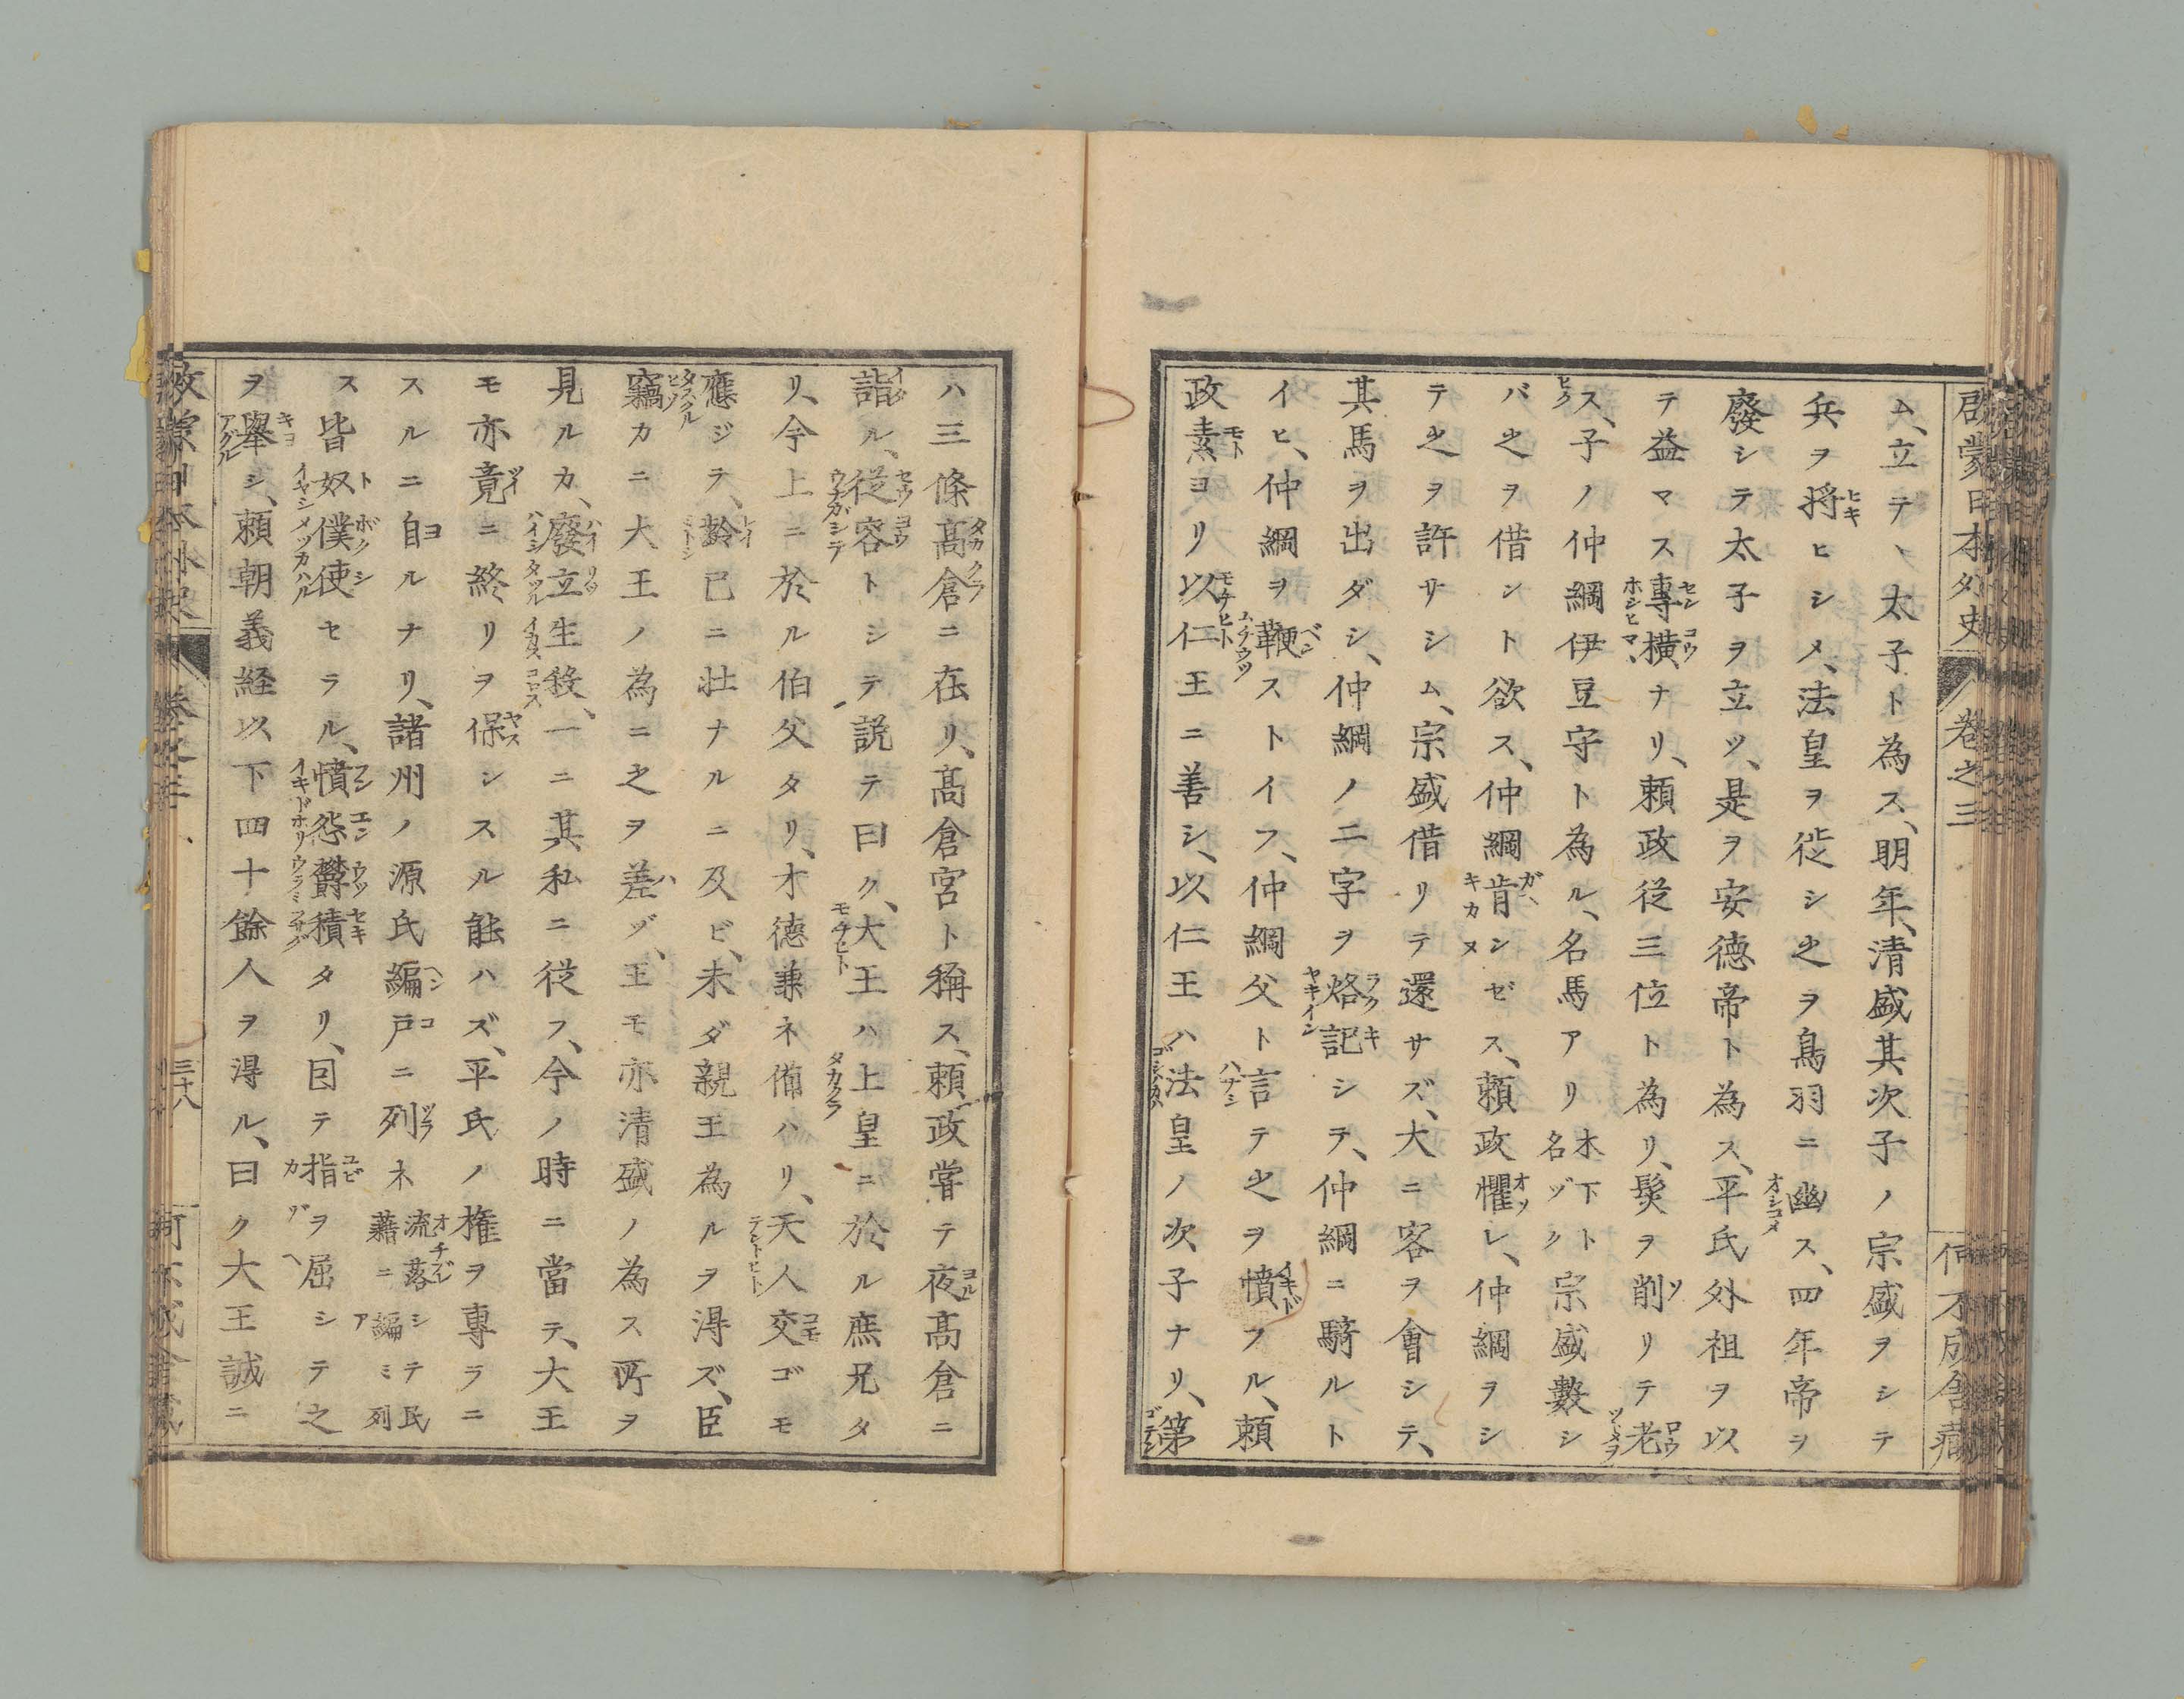 啓蒙日本外史 卷之三 何不成舎藏
ム、立テヽ太子ト為ス、明年、清盛其次子ノ宗盛ヲシテ
兵ヲ将ヒシメ、法皇ヲ徙シ之ヲ鳥羽ニ幽ス、四年帝ヲ
廢シテ太子ヲ立ツ、是ヲ安徳帝ト為ス、平氏外祖ヲ以
テ益マス專横ナリ、頼政従三位ト為リ、髪ヲ削リテ老
ス、子ノ仲綱伊豆守ト為ル、名馬アリ木下ト名ヅク宗盛數シ
バ之ヲ借ント欲ス、仲綱肯ンゼス、頼政懼レ、仲綱ヲシ
テ之ヲ許サシム、宗盛借リテ還サズ、大ニ客ヲ會シテ、
其馬ヲ出ダシ、仲綱ノ二字ヲ烙記シテ、仲綱ニ騎ルト
イヒ、仲綱ヲ鞭ストイフ、仲綱父ト言テ之ヲ憤フル、頼
政素ヨリ以仁王ニ善シ、以仁王ハ法皇ノ次子ナリ、第
ハ三條髙倉ニ在リ、髙倉宮ト稱ス、頼政甞テ夜髙倉ニ
詣ル、従容トシテ説テ曰ク、大王ハ上皇ニ於ル庶兄タ
リ、今上ニ於ル伯父タリ、才徳兼ネ備ハリ、天人交ゴモ
應ジテ、齢已ニ壮ナルニ及ビ、未ダ親王為ルヲ得ズ、臣
竊カニ大王ノ為ニ之ヲ差ヅ、王モ亦清盛ノ為ス所ヲ
見ルカ、廢立生殺、一ニ其私ニ従フ、今ノ時ニ當テ、大王
モ亦竟ニ終リヲ保ンスル能ハズ、平氏ノ権ヲ專ラニ
スルニ自ルナリ、諸州ノ源氏編戸ニ列ネ流落シテ民藉ニ編ミ列
ス皆奴僕使セラル、憤怨欝積タリ、因テ指ヲ屈シテ之
ヲ舉シ、頼朝義経以下四十餘人ヲ得ル、曰ク大王誠ニ
三十八